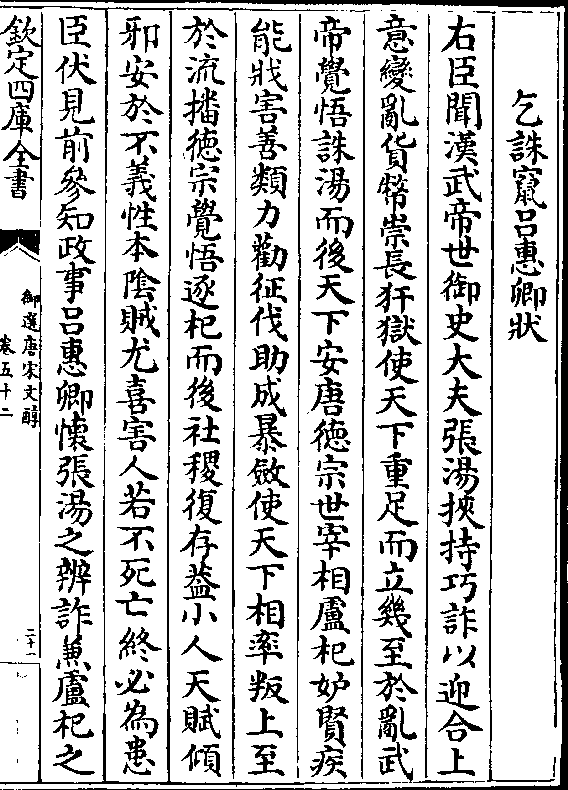 乞誅竄呂惠卿狀
右臣聞漢武帝世御史大夫張湯挾持巧詐以迎合上
意變亂貨幣崇長犴獄使天下重足而立幾至於亂武
帝覺悟誅湯而後天下安唐德宗世宰相盧杞妒賢疾
能戕害善類力勸征伐助成暴斂使天下相率叛上至
於流播德宗覺悟逐杞而後社稷復存葢小人天賦傾
邪安於不義性本陰賊尤喜害人若不死亡終必為患
臣伏見前參知政事呂惠卿懷張湯之辨詐兼盧杞之
欽定四庫全書
御選唐宋文醇
卷五十二
二十一